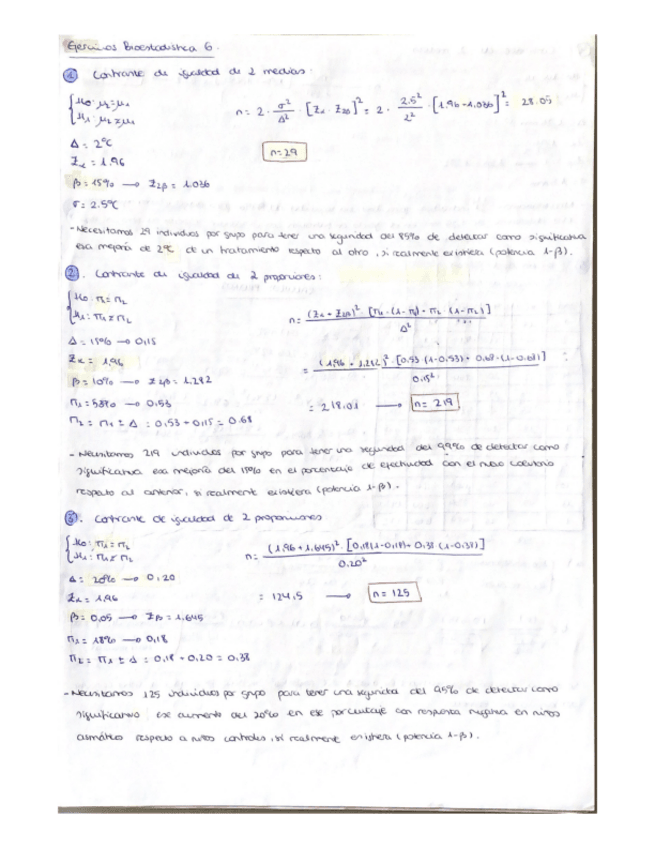 Bioestadística 6.
1. Contraste de igualdad de 2 medias:
{ H0: μ1=μ2
H1: μ2≠μ1
n= 2 · σ²/Δ² · [Zα · Z2β]² = 2 · 2.5²/2² · [1.96-1.036]² = 28.05
Δ = 2ºC
n=29
Zα = 1.96
β = 15% → Z2β = 1.036
σ = 2.5ºC
- Necesitamos 29 individuos por grupo para tener una seguridad del 85% de detectar como significativa
esa mejoría de 2ºC de un tratamiento respecto al otro, si realmente existiera (potencia 1-β).
2. Contraste de igualdad de 2 proporciones:
{ H0: π1 = π2
H1: π1 ≠ π2
n = (Zα + Z2β)² · [π1 · (1-π1) + π2 · (1-π2)] / Δ²
Δ = 15% → 0,15
Zα = 1,96
= (1,96 + 1,282)² · [0.53 (1-0.53) + 0.68 · (1-0.68)] / 0.15²
β = 10% → Z2β = 1.282
π1 = 53% → 0.53
= 218.01 → n= 219
π2 = π1 ± Δ = 0.53 + 0.15 = 0.68
- Necesitamos 219 individuos por grupo para tener una seguridad del 99% de detectar como
significativa esa mejoría del 15% en el porcentaje de efectividad con el nuevo
respecto al anterior, si realmente existiera (potencia 1-β).
3. Contraste de igualdad de 2 proporciones
{ H0: π1 = π2
H1: π1 ≠ π2
n= (1.96 + 1,645)² · [0,18(1-0,18) + 0,38 (1-0.38)] / 0.20²
Δ = 20% → 0,20
Zα = 1,96
= 124,5 → n= 125
β = 0,05 → Zβ = 1,645
π1 = 18% → 0,18
π2 = π1 ± Δ = 0,18 + 0,20 = 0.38
- Necesitamos 125 individuos por grupo para tener una seguridad del 95% de detectar como
significativo ese aumento del 20% en ese porcentaje con respuesta negativa en niños
asmáticos respecto a niños controles, si realmente existiera (potencia 1-β).